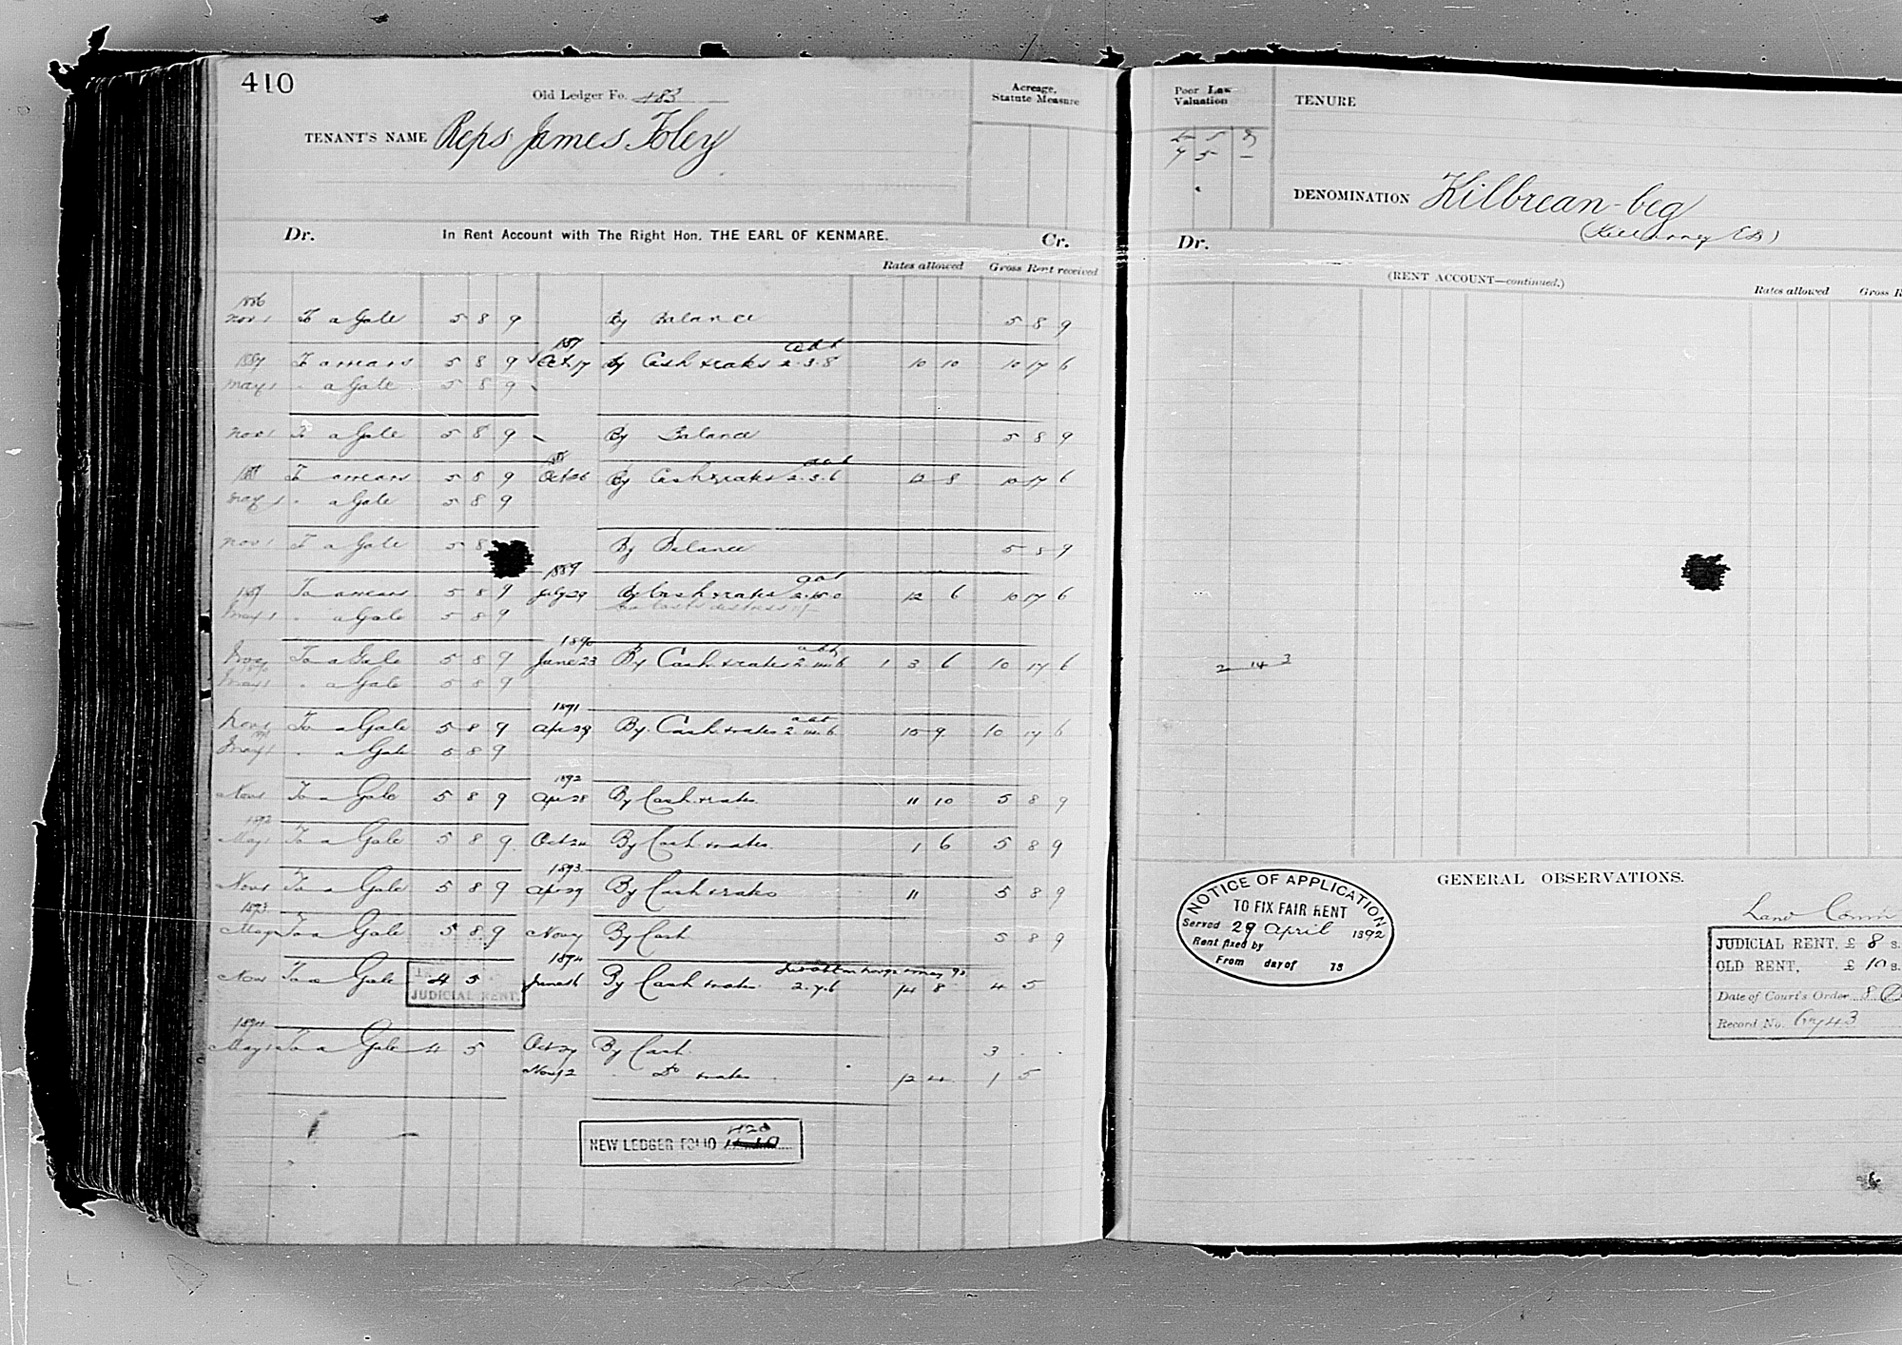 410
Old Ledger Fo. 483
TENANT'S NAME Reps James Foley
Acreage, Statute Measure
Dr. In Rent Account with The Right Hon. THE EARL OF KENMARE. Cr.
Rates allowed Gross Rent received
1886
Nov 1 To a Gale 5 8 9 By Balance 5 8 9
1887
1887 To arrears 5 8 9 Oct 17 By Cash & rates 2.3.8 10 10 10 17 6
May 1 " a Gale 5 8 9
Nov 1 To a Gale 5 8 9 By Balance 5 8 9
1888 To arrears 5 8 9 Oct 26 By Cash & rates 2.3.6 12 8 10 17 6
May 1 " a Gale 5 8 9
Nov 1 To a Gale 5 8 By Balance 5 8 9
1889
1889 To arrears 5 8 9 July 29 By Cash & rates 12 6 10 17 6
May 1 " a Gale 5 8 9
1890
Nov 1 To a Gale 5 8 9 June 23 By Cash & rates 1 3 6 10 17 6
May 1 " a Gale 5 8 9
1891
Nov 1 To a Gale 5 8 9 Apr 29 By Cash & rates 10 9 10 17 6
May 1 " a Gale 5 8 9
1892
Nov 1 To a Gale 5 8 9 Apr 28 By Cash & rates 11 10 5 8 9
1892
May 1 To a Gale 5 8 9 Oct 24 By Cash & rates 1 6 5 8 9
1893
Nov 1 To a Gale 5 8 9 Apr 29 By Cash & rates 11 5 8 9
1893
May 1 To a Gale 5 8 9 Nov 7 By Cash 5 8 9
1894
Nov 1 To a Gale 4 5 June 16 By Cash & rates 2.7.6 14 8 4 5
JUDICIAL RENT.
1894
May 1 To a Gale 4 5 Oct 27 By Cash 3 . .
Nov 12 " Do & rates 12 4 1 5
NEW LEDGER FOLIO 420
Poor Law Valuation
TENURE
4 5 —
DENOMINATION Kilbrean-beg
(Killarney ED)
Dr.
(RENT ACCOUNT—continued.)
Rates allowed Gross R
2 14 3
GENERAL OBSERVATIONS.
NOTICE OF APPLICATION
TO FIX FAIR RENT
Served 29 April 1892
Rent fixed by
From day of 18
Land Comm
JUDICIAL RENT, £ 8 s.
OLD RENT, £ 10 s.
Date of Court's Order 8
Record No. 6743